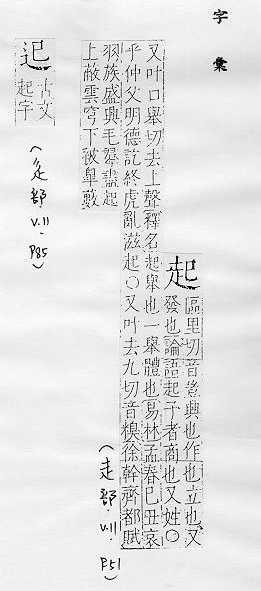 字彙
起
區里切音豈興也作也立也又
發也論語起予者商也又姓〇
又叶口舉切去上聲釋名起舉也一舉體也易林孟春巳丑哀
乎仲父明德訖終虎亂滋起〇又叶去九切音糗徐幹齊都賦
羽族盛興毛羣盡起
上蔽雲穹下被皐藪
(走部.V.11.P51)
𨑔
古文
起字
(辵部.V.11.P85)